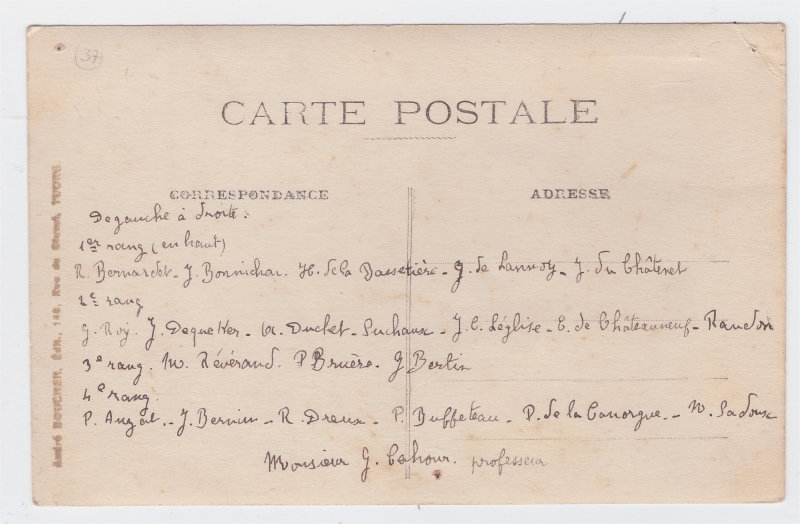 (37)
CARTE POSTALE
CORRESPONDANCE
ADRESSE
De gauche à droite :
1er rang (en haut)
R. Bernardet - J. Bonnichon. H. de la Dassetière - J. de Lannoy - J. du Châtenet
2e rang
G. Roy. J. Dequeker - A. Duchet-Suchaux - J. C. Léglise - E. de Châteauneuf-Randon
3e rang. M. Révérand. P. Bruère. J. Bertin
4e rang.
P. Auzat. - J. Bernin - R. Dreux - P. Buffeteau - P. de la Canorgue - N. Sadoux
Monsieur G. Cahour. professeur
André BOUCHER, Édit., 148, Rue du TOURS